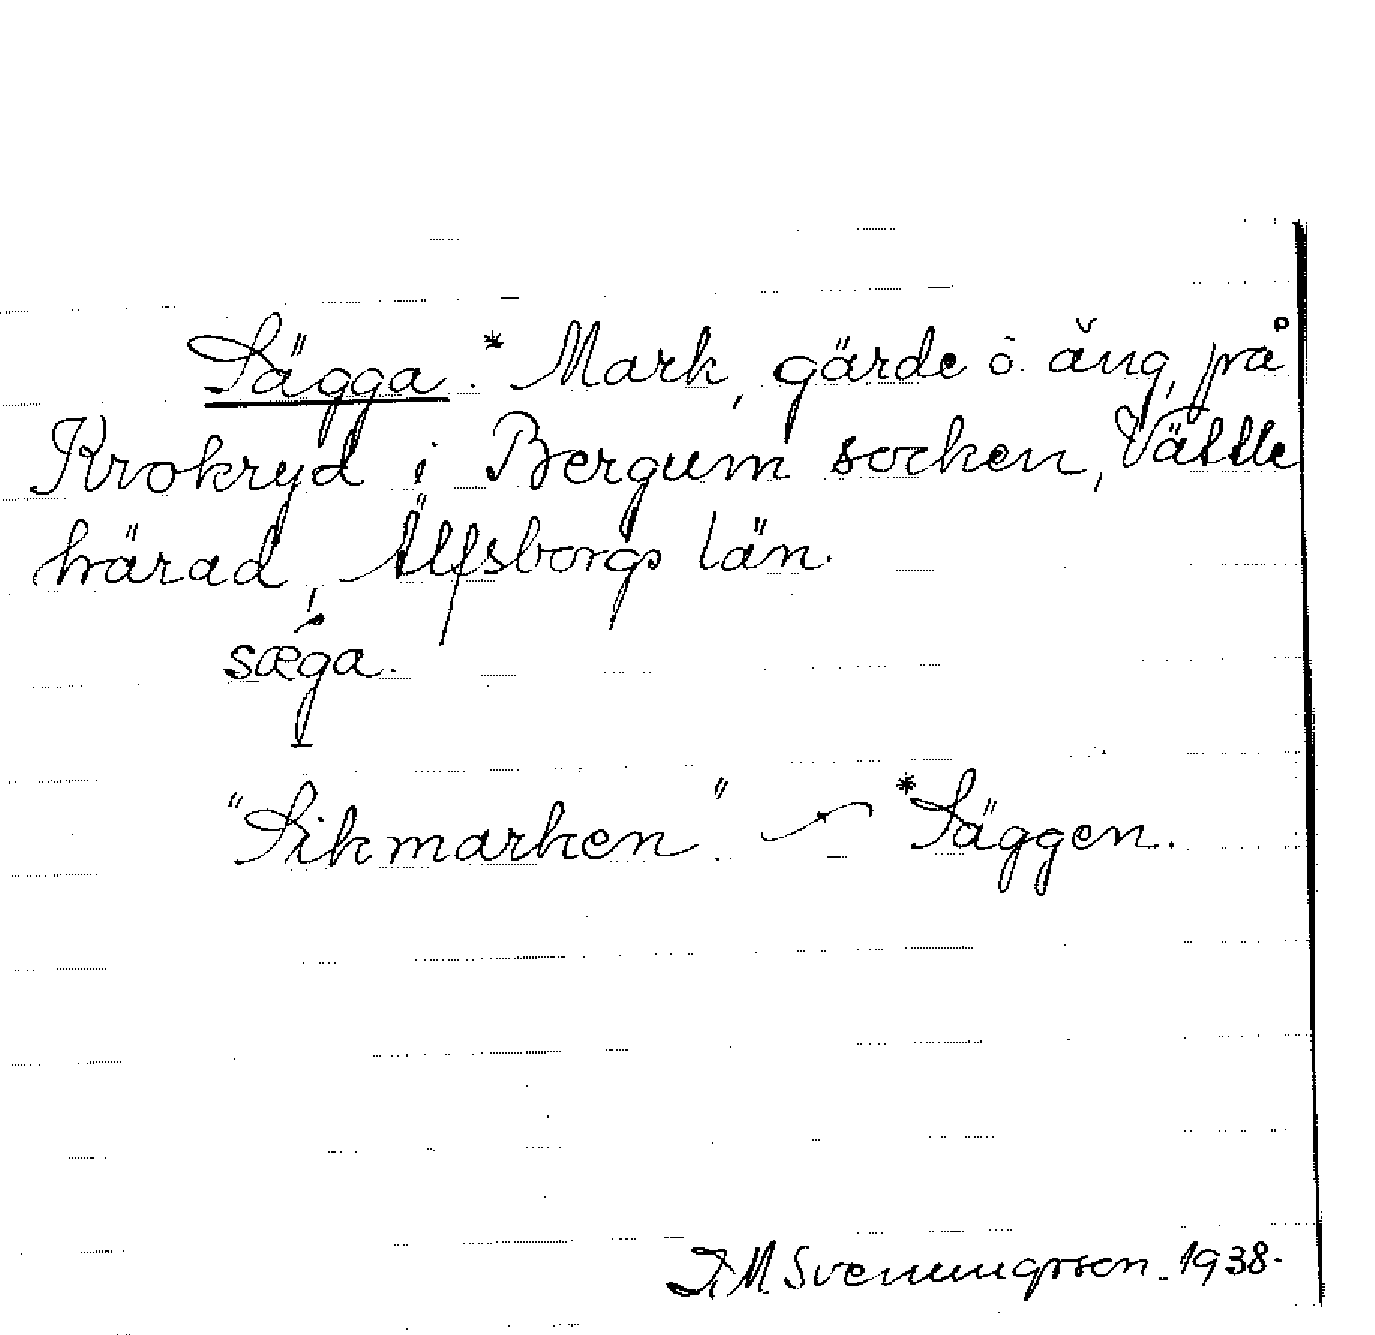 Sägga.* Mark, gärde o. äng, på
Krokryd i Bergum socken, Vättle
härad, Älfsborgs län.
sæga.
"Sikmarken". *Säggen.
Svenungsson. 1938.